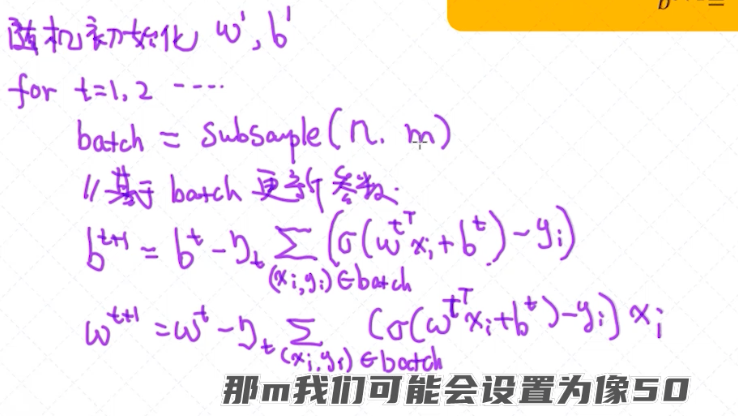 随机初始化 w¹, b¹
for t=1,2 ----
batch = subsample(n, m)
// 基于 batch 更新参数.
b^{t+1} = b^t - η_t ∑_{(x_i,y_i)∈batch} (σ(w^{tT}x_i+b^t)-y_i)
w^{t+1} = w^t - η_t ∑_{(x_i,y_i)∈batch} (σ(w^{tT}x_i+b^t)-y_i) x_i
那m我们可能会设置为像50